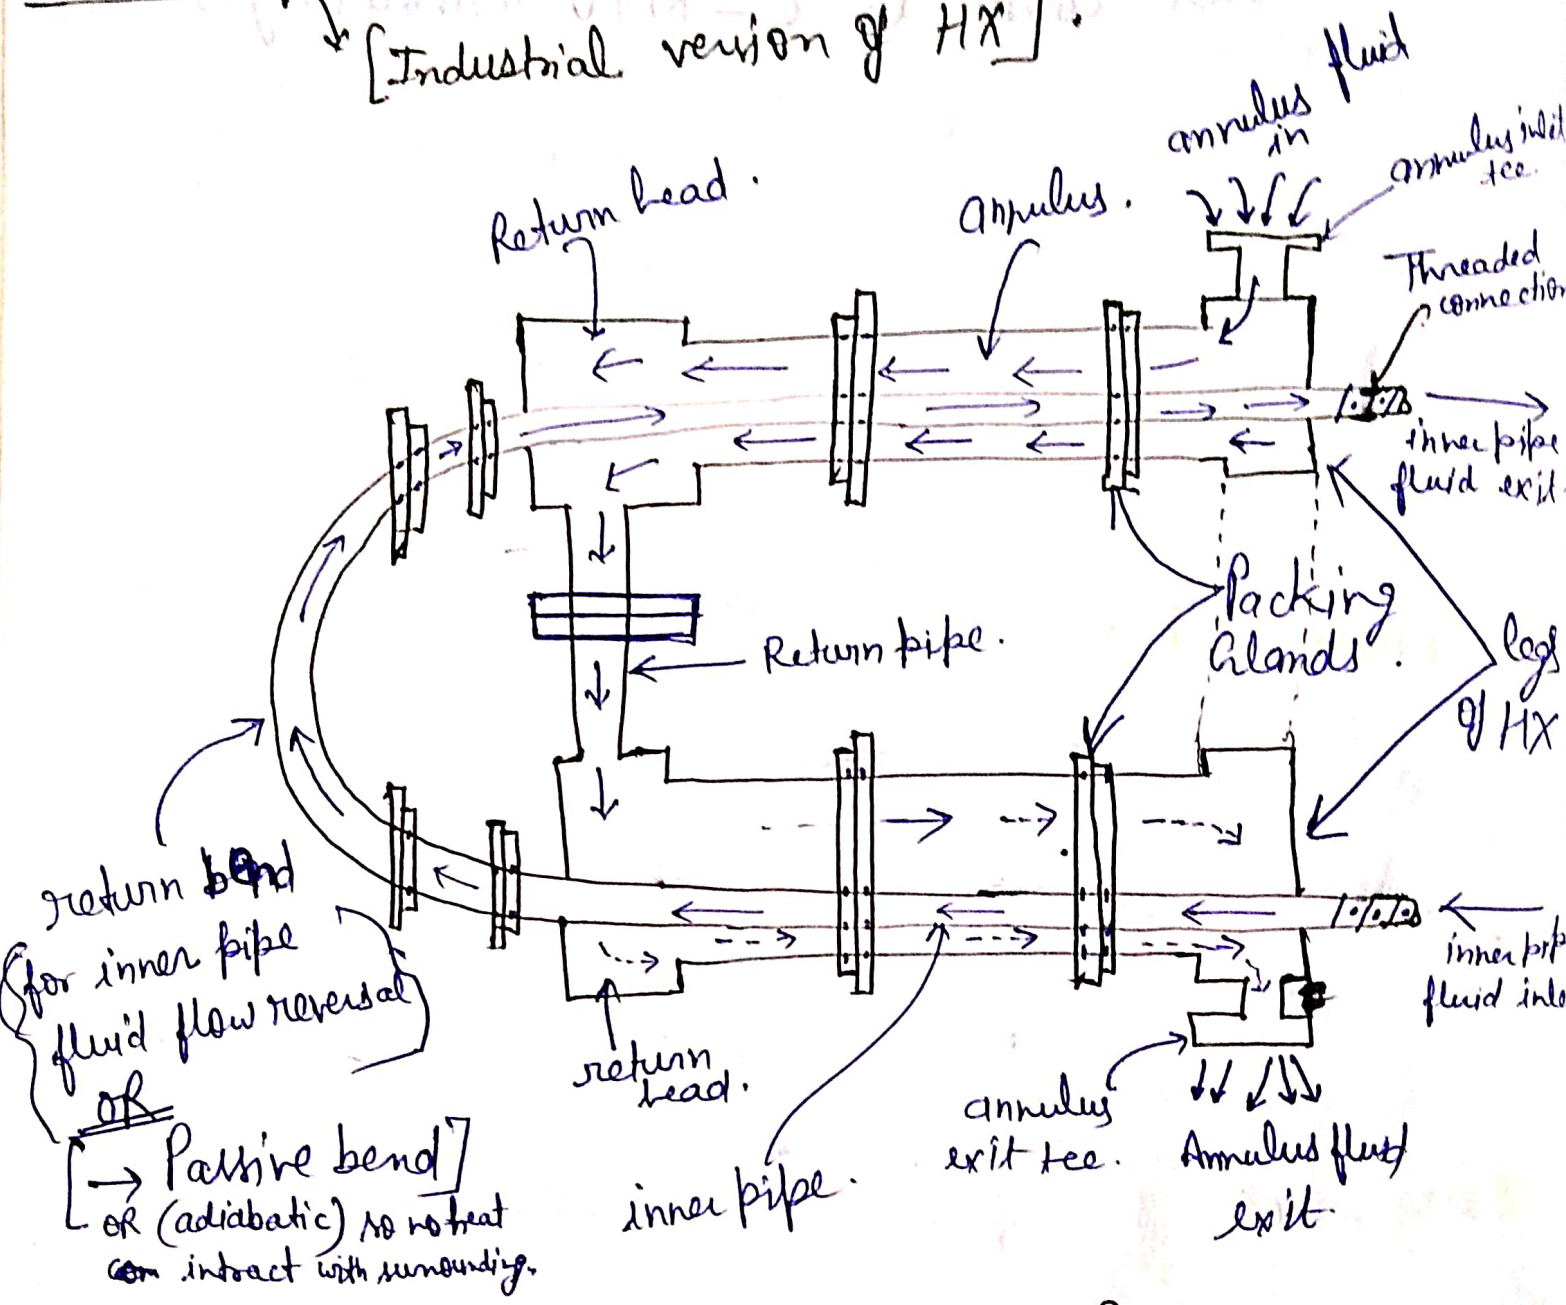 [Industrial version of HX].
annulus fluid
in
annulus inlet
tee.
Return head.
annulus.
Threaded
connection
inner pipe
fluid exit.
Packing
Glands.
legs
of HX
Return pipe.
return bend
for inner pipe
fluid flow reversal
OR
[→ Passive bend]
OR (adiabatic) so no heat
intract with surrounding.
return
head.
inner pipe.
annulus
exit tee.
Annulus fluid
exit.
inner pip
fluid inle